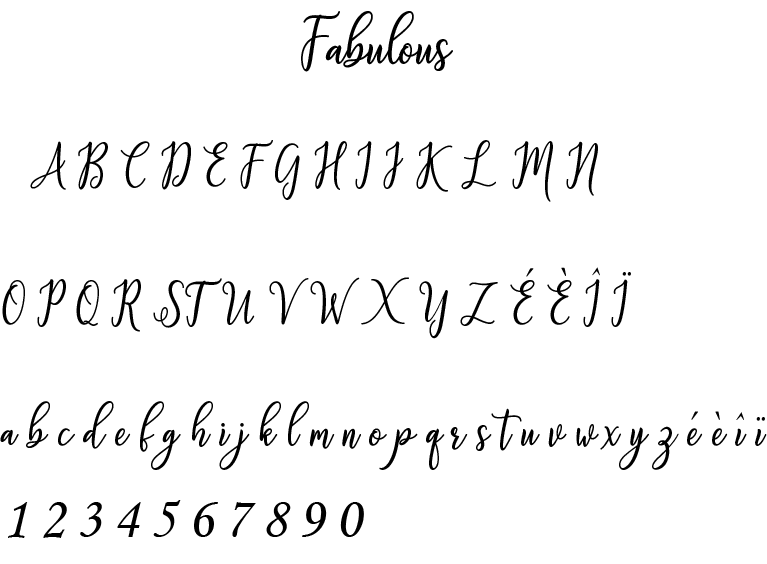 Fabulous
A B C D E F G H I J K L M N
O P Q R S T U V W X Y Z É È Î Ï
a b c d e f g h i j k l m n o p q r s t u v w x y z é è î ï
1 2 3 4 5 6 7 8 9 0